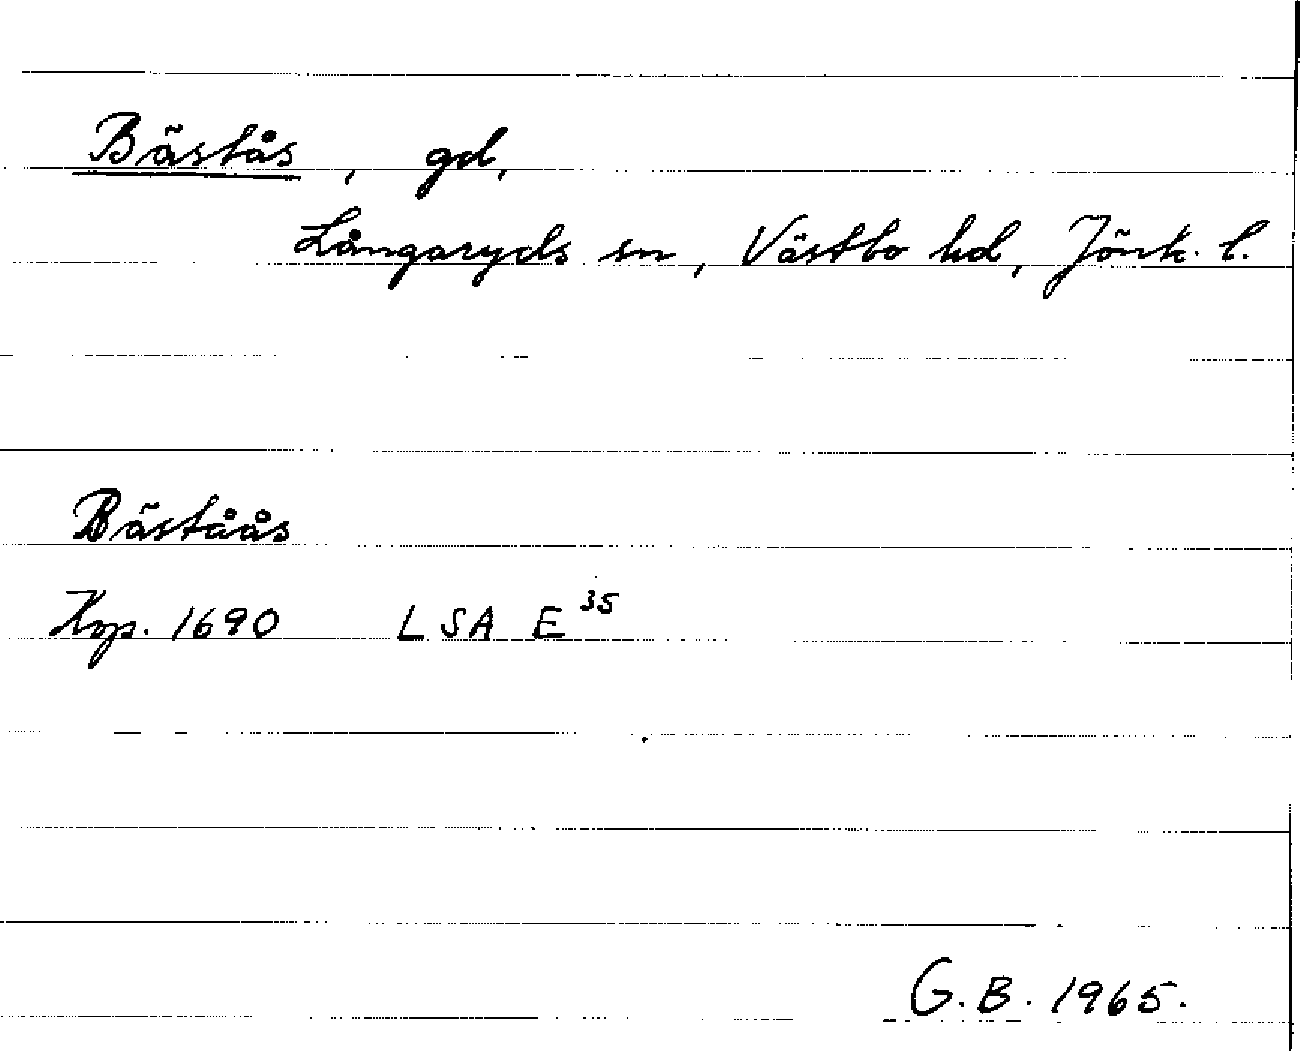 Bästås, gd,
Långaryds sn, Västbo hd, Jönk. l.
Bäståås
Kop. 1690 LSA E 35
G.B. 1965.